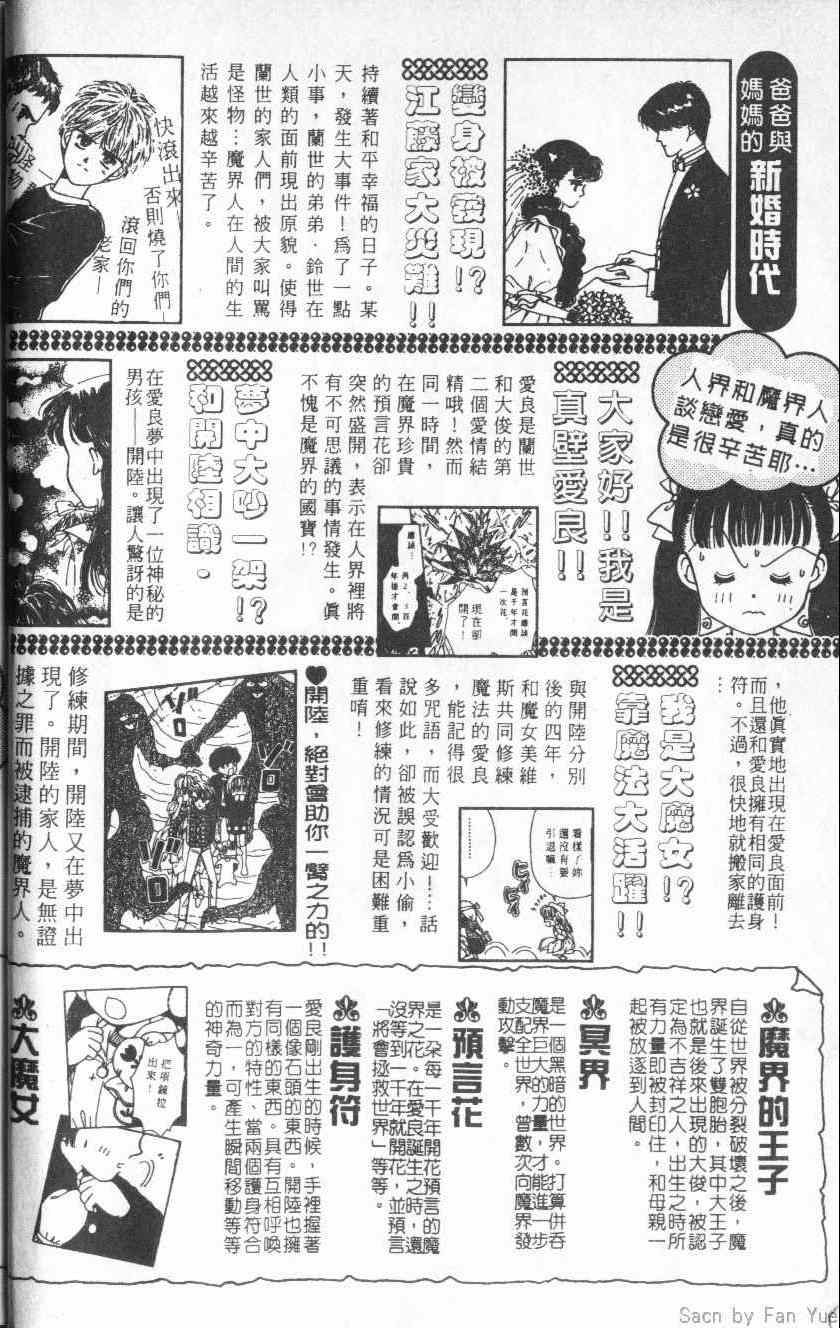 爸爸與
媽媽的
新婚時代
變身被發現!?
江藤家大災難!!
持續著和平幸福的日子。某
天，發生大事件！為了一點
小事，蘭世的弟弟．鈴世在
人類的面前現出原貌。使得
蘭世的家人們，被大家叫罵
是怪物…魔界人在人間的生
活越來越辛苦了。
快滾出來—
否則燒了你們
滾回你們的
老家—
人界和魔界人
談戀愛，真的
是很辛苦耶…
大家好!!我是
真壁愛良!!
愛良是蘭世
和大俊的第
二個愛情結
精哦！然而
同一時間，
在魔界珍貴
的預言花卻
突然盛開，表示在人界裡將
有不可思議的事情發生。眞
不愧是魔界的國寶!?
預言花應該
是千年才開
一次花。
現在卻
開了！
應該…
年後才會開。
夢中大吵一架!?
和開陸相識．
在愛良夢中出現了一位神秘的
男孩——開陸。讓人驚訝的是
，他眞實地出現在愛良面前！
而且還和愛良擁有相同的護身
符。不過，很快地就搬家離去
…
我是大魔女!?
靠魔法大活躍!!
與開陸分別
後的四年，
和魔女美維
斯共同修練
魔法的愛良
，能記得很
多咒語，而大受歡迎！…話
說如此，卻被誤認為小偷，
看來修練的情況可是困難重
重唷！
看樣子妳
還沒有要
引退嘛…
ヒィ
ヒィ
♥開陸，絕對會助你一臂之力的!!
ゾロ
ゾロ
修練期間，開陸又在夢中出
現了。開陸的家人，是無證
據之罪而被逮捕的魔界人。
魔界的王子
自從世界被分裂破壞之後，魔
界誕生了雙胞胎，其中大王子
也就是後來出現的大俊，被認
定為不吉祥之人，出生之時所
有力量即被封印住，和母親一
起被放逐到人間。
冥界
是一個黑暗的世界。打算併吞
魔界巨大的力量，才能進一步
支配全世界，曾數次向魔界發
動攻擊。
預言花
是一朶每一千年開花預言的魔
界之花。在愛良誕生之時，還
沒等到一千年就開花，並預言
「將會拯救世界」等等。
護身符
愛良剛出生的時候，手裡握著
一個像石頭的東西。開陸也擁
有同樣的東西。具有互相呼喚
對方的特性、當兩個護身符合
而為一，可產生瞬間移動等等
的神奇力量。
把項鍊拉
出來！
大魔女
Sacn by Fan Yue